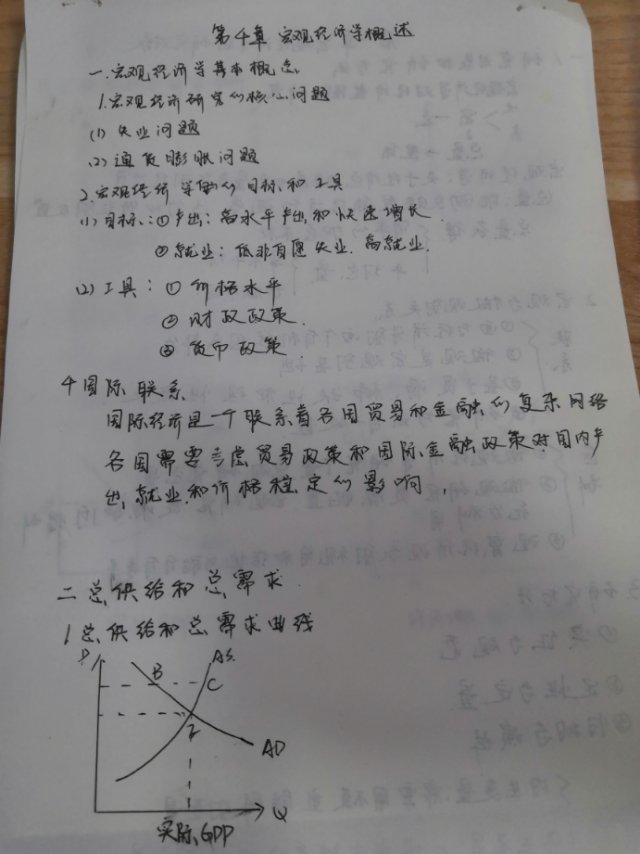 第4章 宏观经济学概述
一.宏观经济学基本概念
1.宏观经济研究的核心问题
(1) 失业问题
(2) 通货膨胀问题
2.宏观经济学的目标和工具
(1)目标:①产出:高水平产出和快速增长
②就业:低非自愿失业.高就业.
(2)工具:①价格水平
②财政政策.
③货币政策
4国际联系
国际经济是一个联系着各国贸易和金融的复杂网络
各国需要考虑贸易政策和国际金融政策对国内产
出,就业.和价格稳定的影响.
二总供给和总需求.
1总供给和总需求曲线
P
AS.
B
C
E
AD
Q
实际GDP